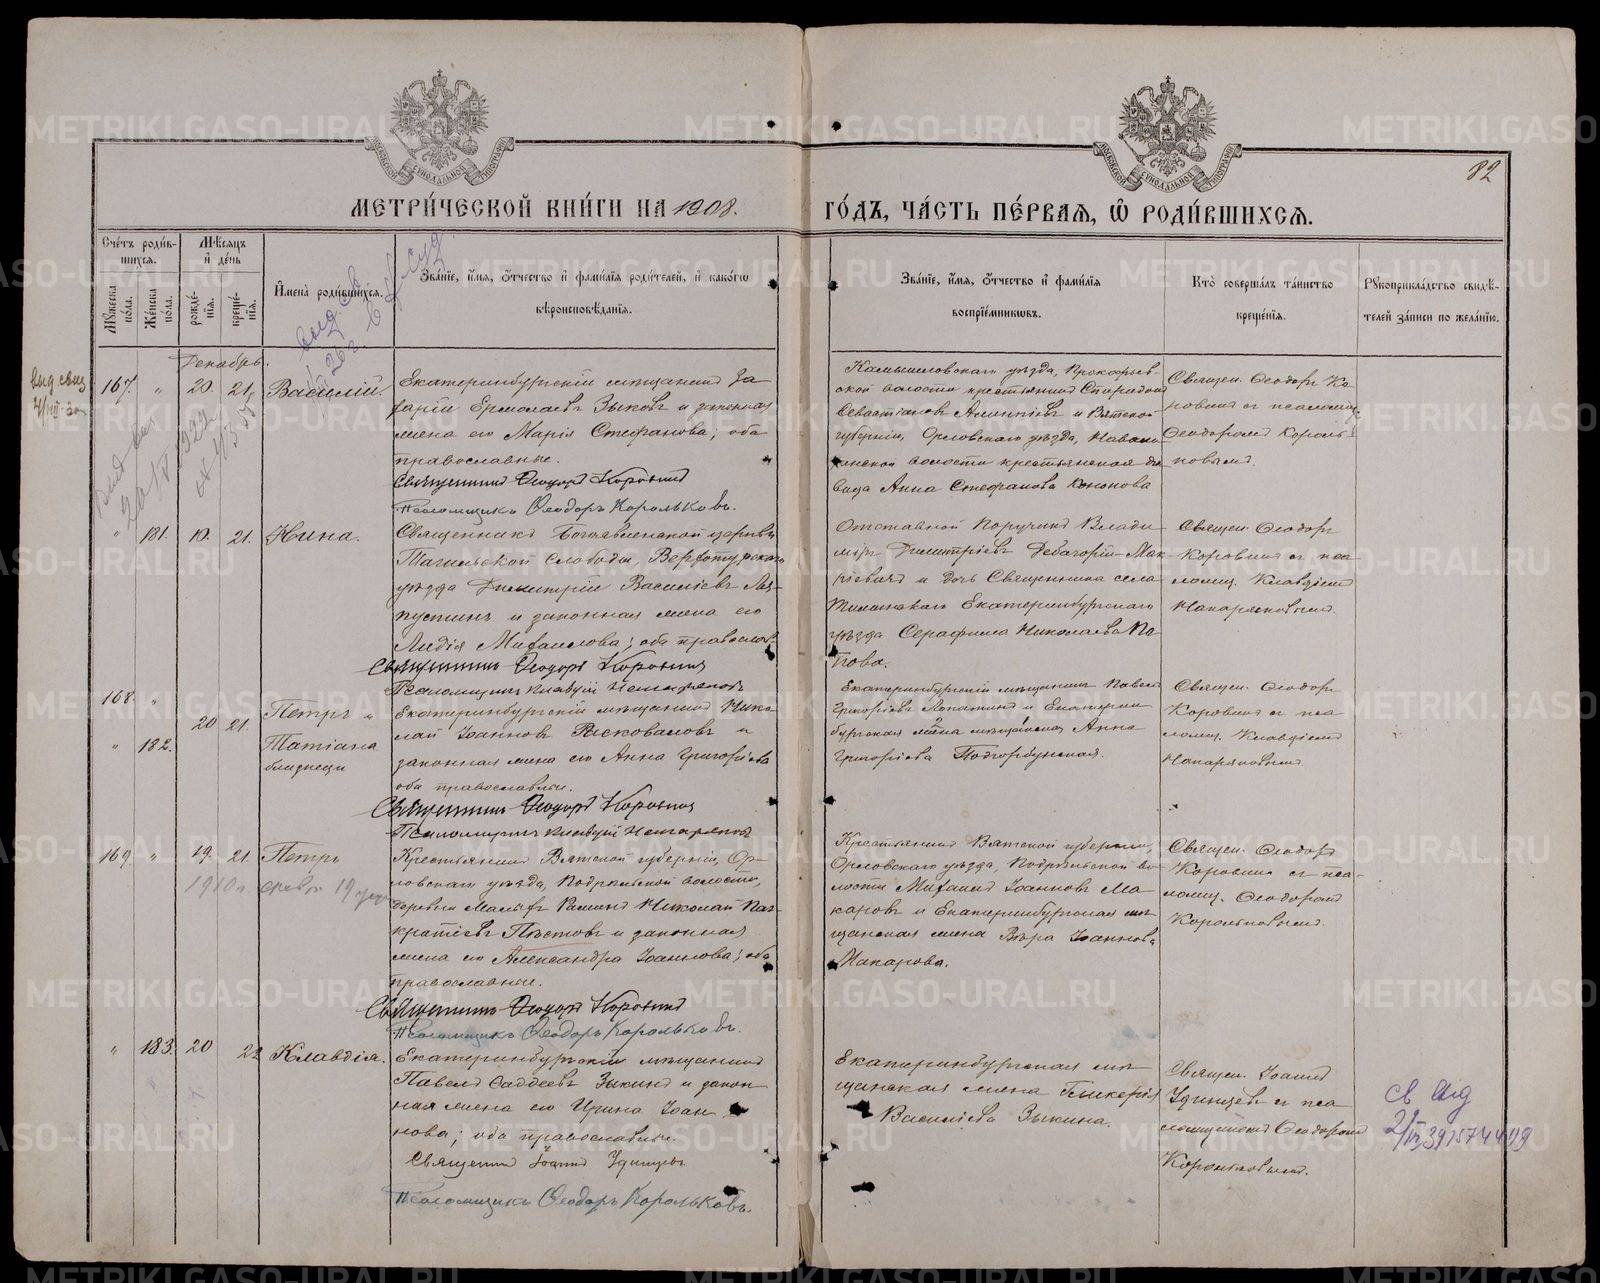 МЕТРИ́ЧЕСКОЙ КНИ́ГИ НА 1908.
ГО́ДЪ, ЧА́СТЬ ПЕ́РВАЯ, Ѽ РОДИ́ВШИХСЯ.
82
Сче́тъ роди́в-
шихся.
Му́жеска по́ла.
Же́нска по́ла.
Мѣ́сяцъ и де́нь
рожде́-
нія.
креще́-
нія.
Имена̀ роди́вшихся.
Зва́ніе, и́мя, о́тчество и фами́лія роди́телей, и како́гѡ
вѣроисповѣ́данія.
Зва́ніе, и́мя, о́тчество и фами́лія
воспріе́мникѡвъ.
Кто̀ соверша́лъ та́инство
креще́нія.
Рукоприкла́дство свидѣ́-
телей за́писи по жела́нію.
Декабрь.
167. " 20. 21. Василій.
Екатеринбургскій мѣщанинъ За
харій Ермолаевъ Зыковъ и законная
жена его Марія Стефанова; оба
православные.
Священникъ Ѳеодоръ Коровинъ
Псаломщикъ Ѳеодоръ Корольковъ.
Камышловскаго уѣзда, Прокофьев-
ской волости крестьянинъ Спиридонъ
Севастіановъ и Вятской
губерніи, Орловскаго уѣзда,
волости крестьянская дѣ
вица Анна Стефанова Кононова
Священ. Ѳеодоръ Ко
ровинъ съ псаломщ.
Ѳеодоромъ Король-
ковымъ.
" 181. 19. 21. Нина.
Священникъ Богоявленской церкви
Тагильской Слободы, Верхотурскаго
уѣзда Димитрій Васильевъ Ля-
пустинъ и законная жена его
Лидія Михаилова; оба православ.
Священникъ Ѳеодоръ Коровинъ
Псаломщикъ Клавдій
Отставной Поручикъ Влади
міръ Димитріевъ Дебагорій-Мок
ріевичъ и дочь Священника села
Екатеринбургскаго
уѣзда Серафима Николаева По-
пова.
Священ. Ѳеодоръ
Коровинъ съ пса
ломщ. Клавдіемъ
168. "
20 21.
" 182.
Петръ и
Татіана
близнецы
Екатеринбургскій мѣщанинъ Нико
лай Іоанновъ Расковаловъ и
законная жена его Анна Григорьева
оба православные.
Священникъ Ѳеодоръ Коровинъ
Псаломщикъ Клавдій
Екатеринбургскій мѣщанинъ Павелъ
Григорьевъ Лопатинъ и Екатерин
бургская жена мѣщанина Анна
Григорьева Подгорбунская.
Священ. Ѳеодоръ
Коровинъ съ пса
ломщ. Клавдіемъ
169. " 19. 21. Петръ
1910 г.
Крестьянинъ Вятской губерніи, Ор-
ловскаго уѣзда, Подрельской волости,
деревни Николай Пан-
кратіевъ Пѣстовъ и законная
жена его Александра Іоаннова; оба
православные.
Священникъ Ѳеодоръ Коровинъ
Псаломщикъ Ѳеодоръ Корольковъ.
Крестьянинъ Вятской губерніи,
Орловскаго уѣзда, Подрельской во
лости Михаилъ Іоанновъ Ма
каровъ и Екатеринбургская мѣ
щанская жена Вѣра Іоаннова
Макарова.
Священ. Ѳеодоръ
Коровинъ съ пса-
ломщ. Ѳеодоромъ
Корольковымъ.
" 183. 20 22 Клавдія.
Екатеринбургскій мѣщанинъ
Павелъ Фаддеевъ Зыкинъ и закон
ная жена его Ирина Іоан
нова; оба православные.
Священникъ Іоаннъ Удинцевъ
Псаломщикъ Ѳеодоръ Корольковъ.
Екатеринбургская мѣ
щанская жена Гликерія
Васильева Зыкина.
Священ. Іоаннъ
Удинцевъ съ пса
ломщикомъ Ѳеодоромъ
Корольковымъ.
св выд
METRIKI.GASO-URAL.RU